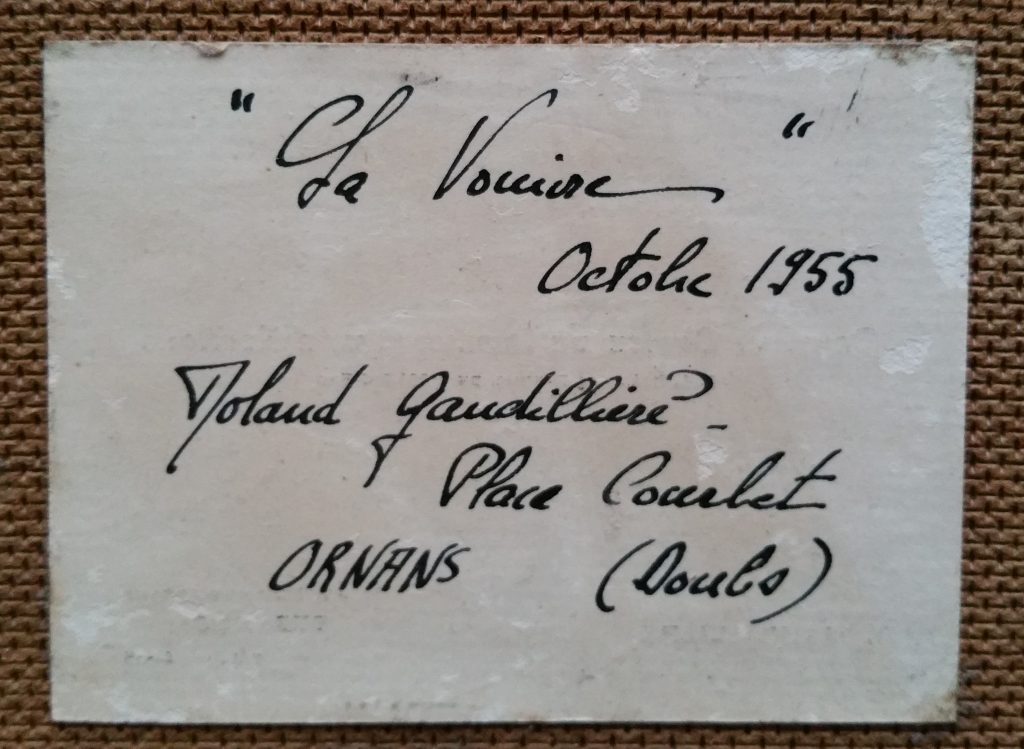 " La Vouivre "
Octobre 1955
Roland Gaudillière -
Place Courbet
ORNANS (Doubs)